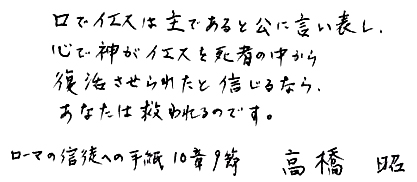 口でイエスは主であると公に言い表し、
心で神がイエスを死者の中から
復活させられたと信じるなら、
あなたは救われるのです。
ローマの信徒への手紙10章9節 高橋 昭